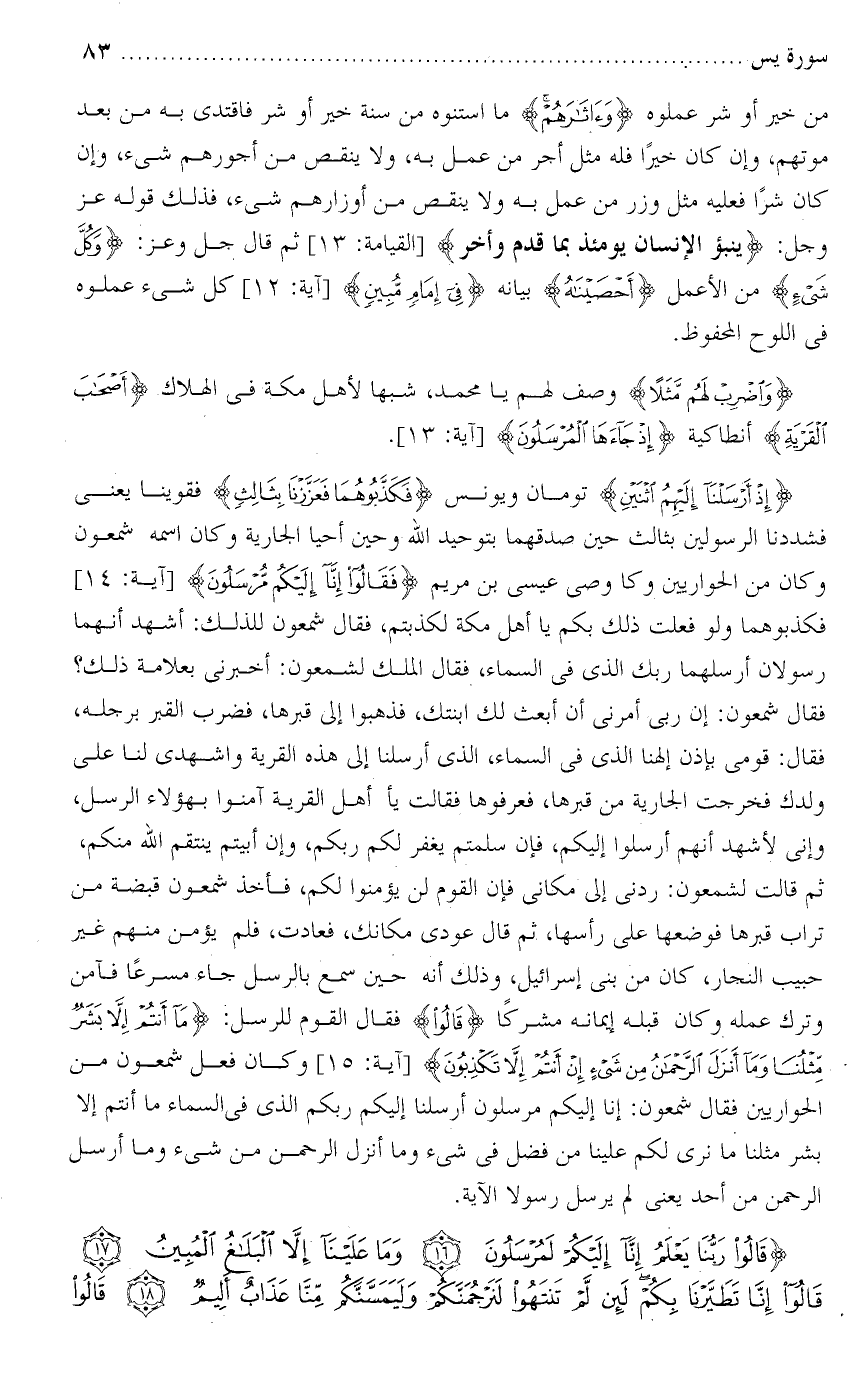 سورة يس ........................................................................ ٨٣
من خير أو شر عملوه ﴿وَءَاثَٰرَهُمْۚ﴾ ما استنوه من سنة خير أو شر فاقتدى به من بعد
موتهم، وإن كان خيرًا فله مثل أجر من عمل به، ولا ينقص من أجورهم شىء، وإن
كان شرًا فعليه مثل وزر من عمل به ولا ينقص من أوزارهم شىء، فذلك قوله عز
وجل: ﴿ينبؤ الإنسان يومئذ بما قدم وأخر﴾ [القيامة: ١٣] ثم قال جل وعز: ﴿وَكُلَّ
شَىْءٍ﴾ من الأعمل ﴿أَحْصَيْنَٰهُ﴾ بيانه ﴿فِىٓ إِمَامٍ مُّبِينٍ﴾ [آية: ١٢] كل شىء عملوه
فى اللوح المحفوظ.
﴿وَٱضْرِبْ لَهُم مَّثَلًا﴾ وصف لهم يا محمد، شبها لأهل مكة فى الهلاك ﴿أَصْحَٰبَ
ٱلْقَرْيَةِ﴾ أنطاكية ﴿إِذْ جَآءَهَا ٱلْمُرْسَلُونَ﴾ [آية: ١٣].
﴿إِذْ أَرْسَلْنَآ إِلَيْهِمُ ٱثْنَيْنِ﴾ تومان ويونس ﴿فَكَذَّبُوهُمَا فَعَزَّزْنَا بِثَالِثٍ﴾ فقوينا يعنى
فشددنا الرسولين بثالث حين صدقهما بتوحيد الله وحين أحيا الجارية وكان اسمه شمعون
وكان من الحواريين وكا وصى عيسى بن مريم ﴿فَقَالُوٓا۟ إِنَّآ إِلَيْكُم مُّرْسَلُونَ﴾ [آية: ١٤]
فكذبوهما ولو فعلت ذلك بكم يا أهل مكة لكذبتم، فقال شمعون للذلك: أشهد أنهما
رسولان أرسلهما ربك الذى فى السماء، فقال الملك لشمعون: أخبرنى بعلامة ذلك؟
فقال شمعون: إن ربى أمرنى أن أبعث لك ابنتك، فذهبوا إلى قبرها، فضرب القبر برجله،
فقال: قومى بإذن إلهنا الذى فى السماء، الذى أرسلنا إلى هذه القرية واشهدى لنا على
ولدك فخرجت الجارية من قبرها، فعرفوها فقالت يأ أهل القرية آمنوا بهؤلاء الرسل،
وإنى لأشهد أنهم أرسلوا إليكم، فإن سلمتم يغفر لكم ربكم، وإن أبيتم ينتقم الله منكم،
ثم قالت لشمعون: ردنى إلى مكانى فإن القوم لن يؤمنوا لكم، فأخذ شمعون قبضة من
تراب قبرها فوضعها على رأسها، ثم قال عودى مكانك، فعادت، فلم يؤمن منهم غير
حبيب النجار، كان من بنى إسرائيل، وذلك أنه حين سمع بالرسل جاء مسرعًا فآمن
وترك عمله وكان قبله إيمانه مشركًا ﴿قَالُوا۟﴾ فقال القوم للرسل: ﴿مَآ أَنتُمْ إِلَّا بَشَرٌ
مِّثْلُنَا وَمَآ أَنزَلَ ٱلرَّحْمَٰنُ مِن شَىْءٍ إِنْ أَنتُمْ إِلَّا تَكْذِبُونَ﴾ [آية: ١٥] وكان فعل شمعون من
الحواريين فقال شمعون: إنا إليكم مرسلون أرسلنا إليكم ربكم الذى فى السماء ما أنتم إلا
بشر مثلنا ما نرى لكم علينا من فضل فى شىء وما أنزل الرحمن من شىء وما أرسل
الرحمن من أحد يعنى لم يرسل رسولا الآية.
﴿قَالُوا۟ رَبُّنَا يَعْلَمُ إِنَّآ إِلَيْكُمْ لَمُرْسَلُونَ ١٦ وَمَا عَلَيْنَآ إِلَّا ٱلْبَلَٰغُ ٱلْمُبِينُ ١٧
قَالُوٓا۟ إِنَّا تَطَيَّرْنَا بِكُمْۖ لَئِن لَّمْ تَنتَهُوا۟ لَنَرْجُمَنَّكُمْ وَلَيَمَسَّنَّكُم مِّنَّا عَذَابٌ أَلِيمٌ ١٨ قَالُوا۟